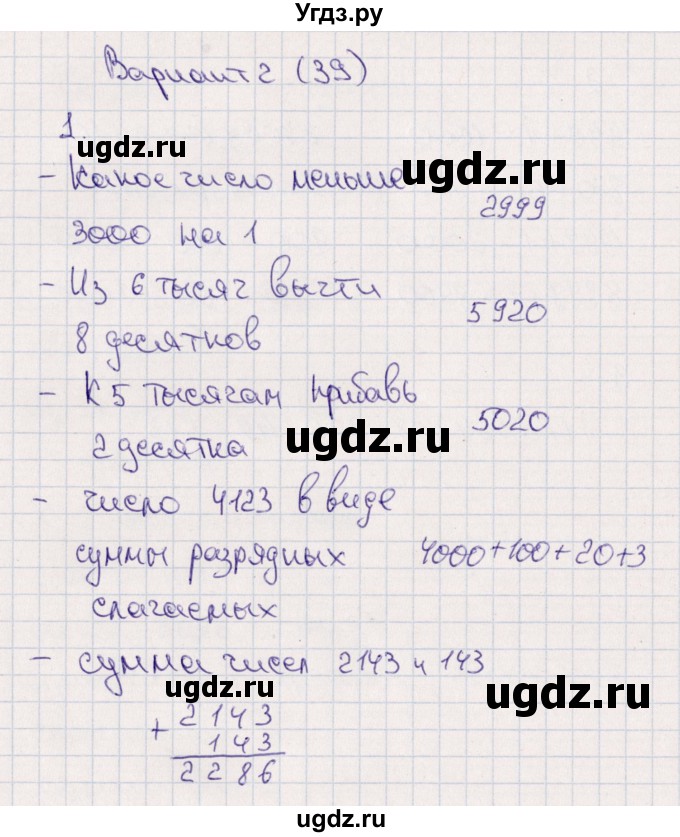 Угдз.ру
Вариант 2 (39)
1.
ugdz.ru
ugdz.ru
- Какое число меньше
3000 на 1
2999
- Из 6 тысяч вычти
8 десятков
5920
- К 5 тысячам прибавь
2 десятка
5020
ugdz.ru
- число 4123 в виде
суммы разрядных
слагаемых
4000+100+20+3
- сумма чисел 2143 и 143
ugdz.ru
ugdz.ru
+ 2143
143
2286
ugdz.ru